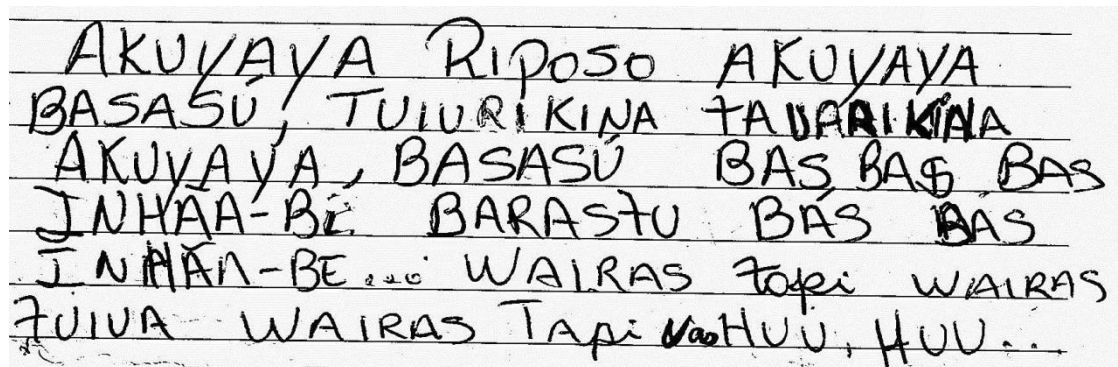 AKUYAYA RIPOSO AKUYAYA
BASASÚ, TUIURIKINA TAUARIKINA
AKUYAYA, BASASÚ BAS BAS BAS
INHÃA-BÉ BARASTU BÁS BÁS
INHÃA-BE... WAIRAS tapi WAIRAS
TUIUA WAIRAS TApi HUU, HUU...